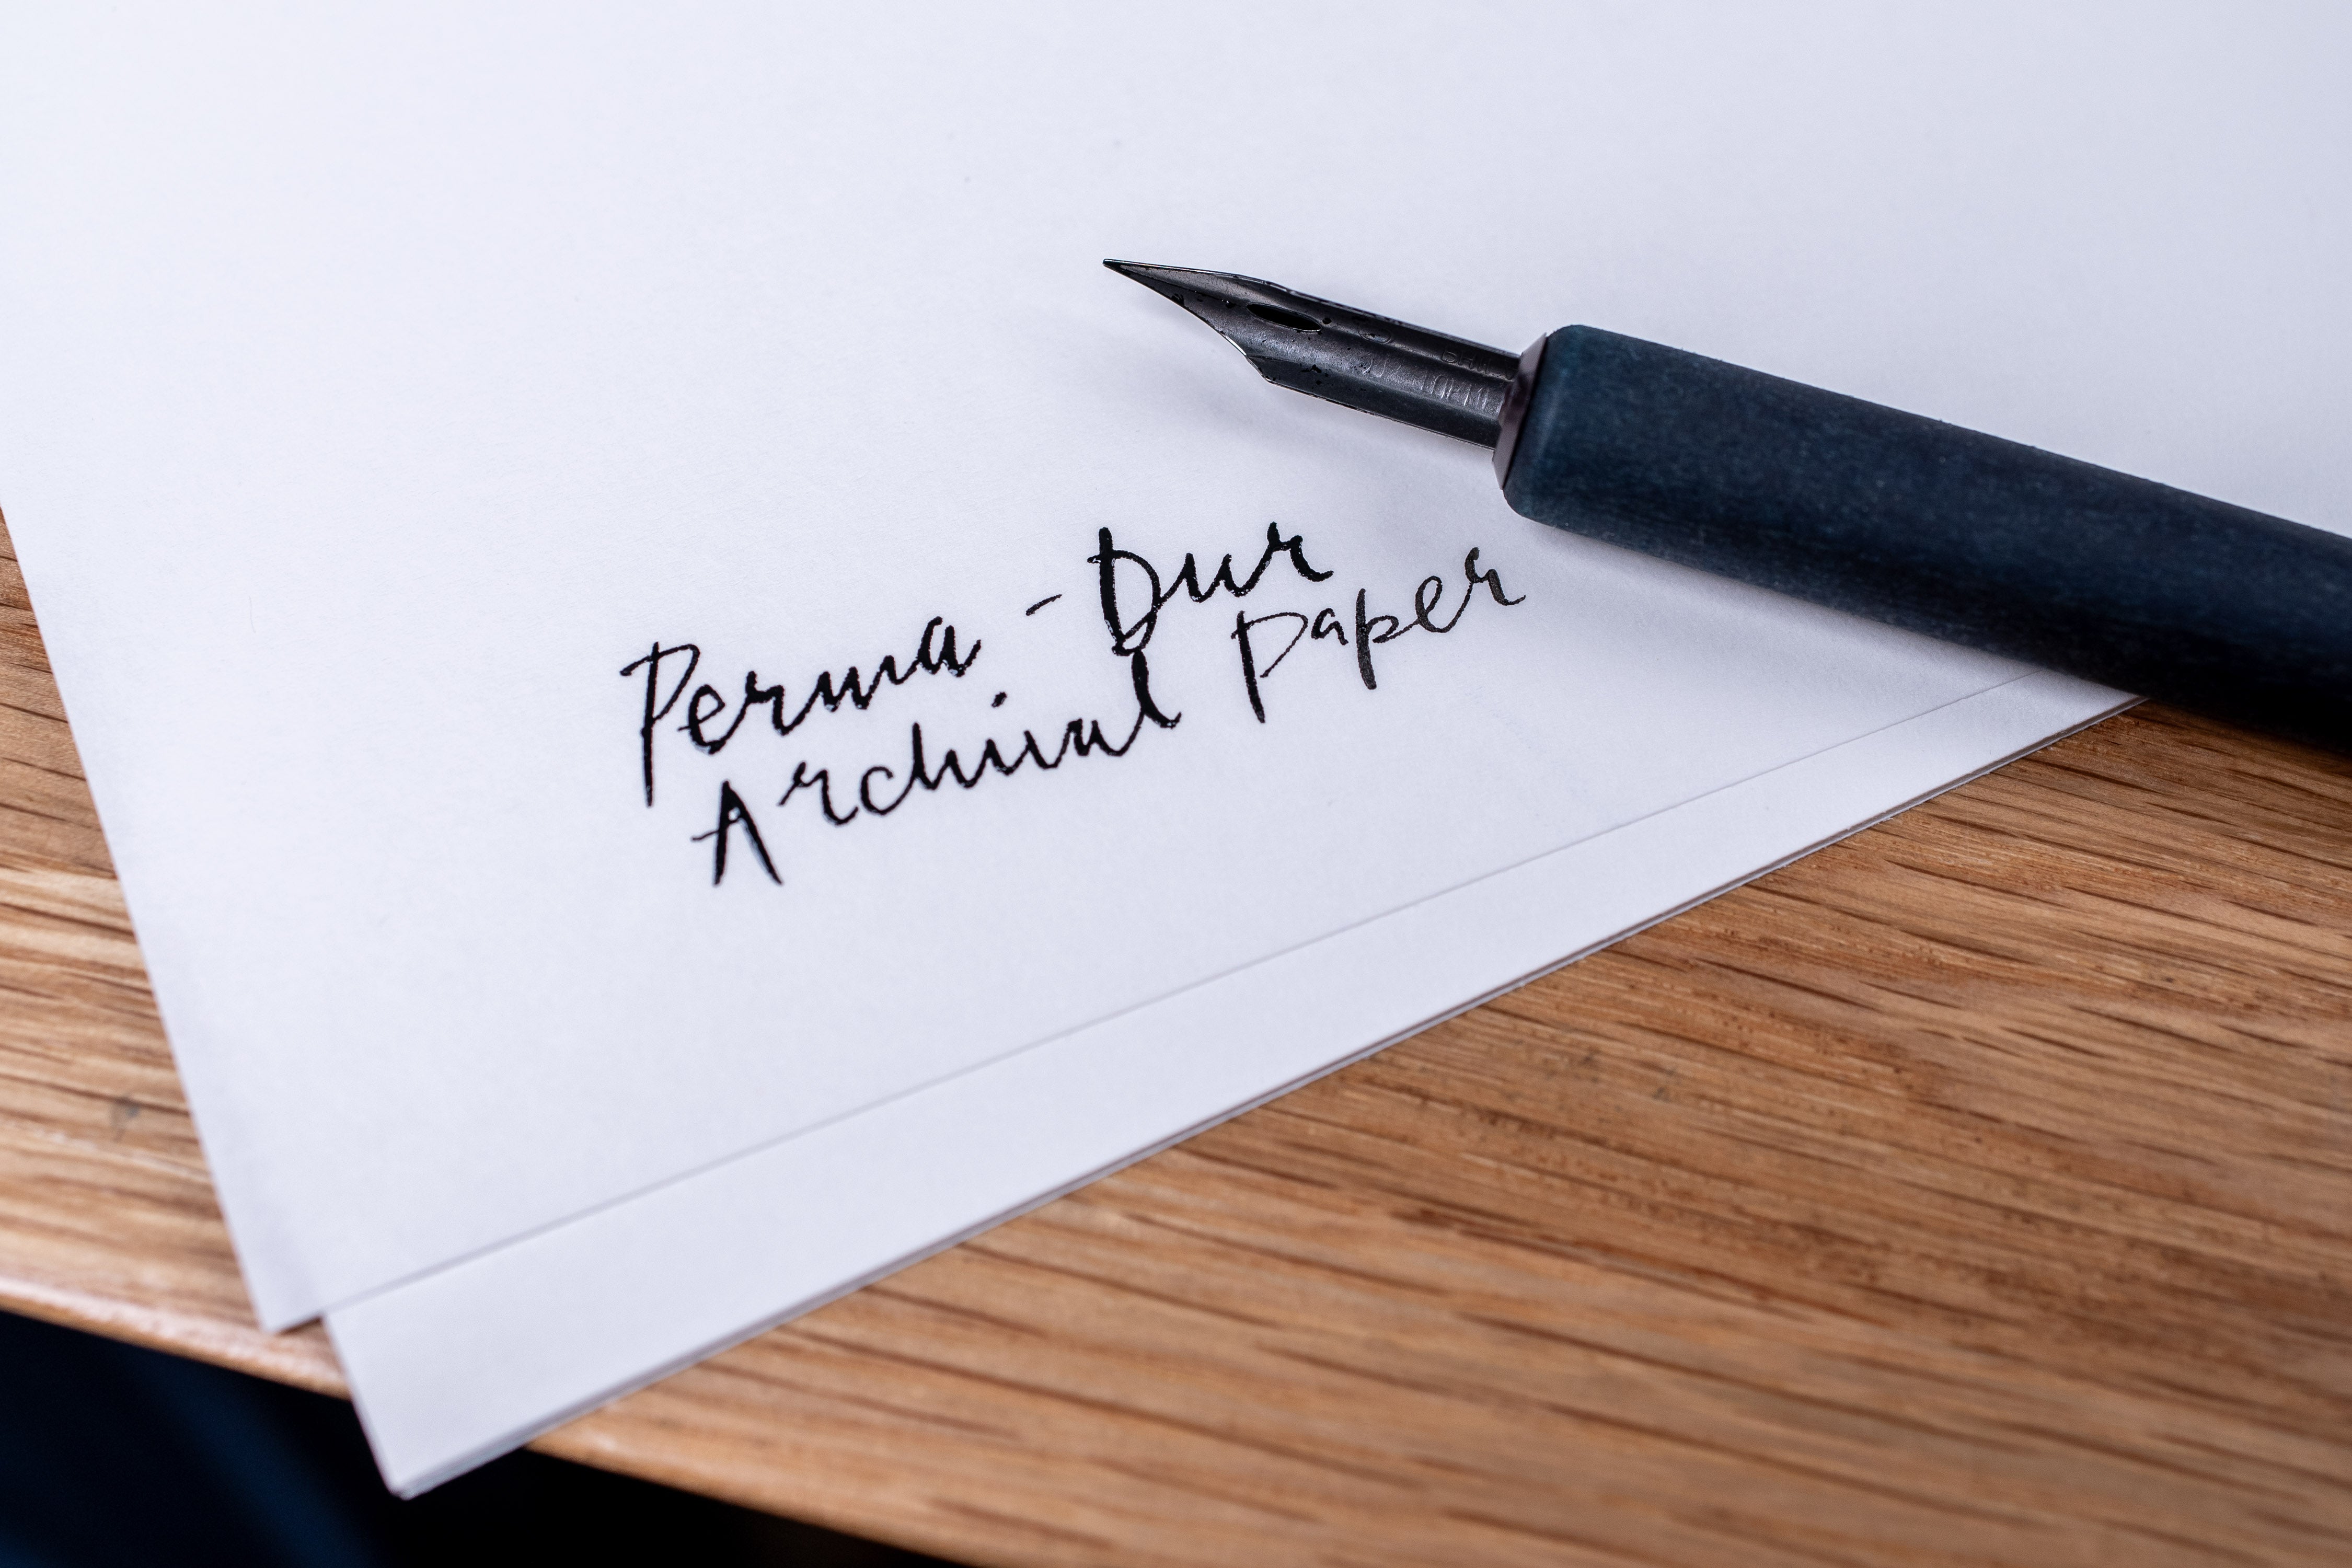 Perma-Dur
Archival Paper